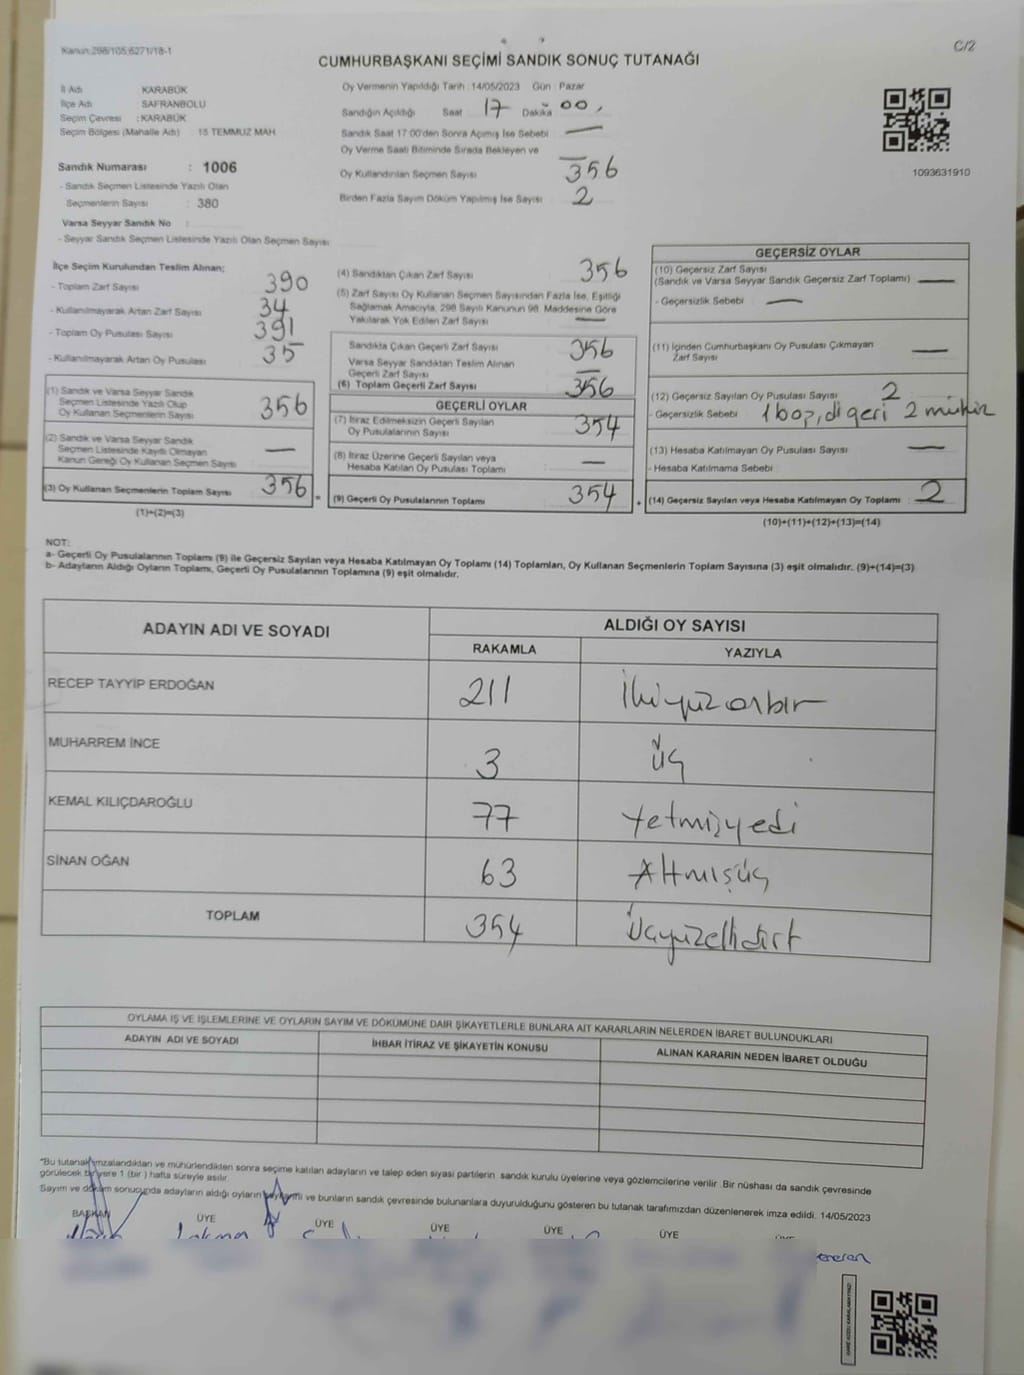 Kanun:298/105,6271/18-1
C/2
CUMHURBAŞKANI SEÇİMİ SANDIK SONUÇ TUTANAĞI
İl Adı KARABÜK
İlçe Adı SAFRANBOLU
Seçim Çevresi : KARABÜK
Seçim Bölgesi (Mahalle Adı) 15 TEMMUZ MAH.
Sandık Numarası : 1006
- Sandık Seçmen Listesinde Yazılı Olan
Seçmenlerin Sayısı : 380
Varsa Seyyar Sandık No :
- Seyyar Sandık Seçmen Listesinde Yazılı Olan Seçmen Sayısı
Oy Vermenin Yapıldığı Tarih : 14/05/2023 Gün : Pazar
Sandığın Açıldığı Saat 17 Dakika 00,
Sandık Saat 17:00'den Sonra Açımış İse Sebebi : —
Oy Verme Saati Bitiminde Sırada Bekleyen ve —
Oy Kullandırılan Seçmen Sayısı : 356
Birden Fazla Sayım Döküm Yapılmış İse Sayısı : 2
1093631910
İlçe Seçim Kurulundan Teslim Alınan;
- Toplam Zarf Sayısı 390
- Kullanılmayarak Artan Zarf Sayısı 34
- Toplam Oy Pusulası Sayısı 391
- Kullanılmayarak Artan Oy Pusulası 35
(1) Sandık ve Varsa Seyyar Sandık
Seçmen Listesinde Yazılı Olup
Oy Kullanan Seçmenlerin Sayısı 356
(2) Sandık ve Varsa Seyyar Sandık
Seçmen Listesinde Kayıtlı Olmayan
Kanun Gereği Oy Kullanan Seçmen Sayısı —
(3) Oy Kullanan Seçmenlerin Toplam Sayısı 356 =
(1)+(2)=(3)
(4) Sandıktan Çıkan Zarf Sayısı 356
(5) Zarf Sayısı Oy Kullanan Seçmen Sayısından Fazla İse, Eşitliği
Sağlamak Amacıyla, 298 Sayılı Kanunun 98. Maddesine Göre
Yakılarak Yok Edilen Zarf Sayısı —
Sandıkta Çıkan Geçerli Zarf Sayısı 356
Varsa Seyyar Sandıktan Teslim Alınan
Geçerli Zarf Sayısı —
(6) Toplam Geçerli Zarf Sayısı 356
GEÇERLİ OYLAR
(7) İtiraz Edilmeksizin Geçerli Sayılan
Oy Pusulalarının Sayısı 354
(8) İtiraz Üzerine Geçerli Sayılan veya
Hesaba Katılan Oy Pusulası Toplamı —
(9) Geçerli Oy Pusulalarının Toplamı 354 +
GEÇERSİZ OYLAR
(10) Geçersiz Zarf Sayısı
(Sandık ve Varsa Seyyar Sandık Geçersiz Zarf Toplamı) —
- Geçersizlik Sebebi —
(11) İçinden Cumhurbaşkanı Oy Pusulası Çıkmayan
Zarf Sayısı —
(12) Geçersiz Sayılan Oy Pusulası Sayısı 2
- Geçersizlik Sebebi 1 boş, digeri 2 mühür
(13) Hesaba Katılmayan Oy Pusulası Sayısı —
- Hesaba Katılmama Sebebi
(14) Geçersiz Sayılan veya Hesaba Katılmayan Oy Toplamı : 2
(10)+(11)+(12)+(13)=(14)
NOT:
a- Geçerli Oy Pusulalarının Toplamı (9) ile Geçersiz Sayılan veya Hesaba Katılmayan Oy Toplamı (14) Toplamları, Oy Kullanan Seçmenlerin Toplam Sayısına (3) eşit olmalıdır. (9)+(14)=(3)
b- Adayların Aldığı Oyların Toplamı, Geçerli Oy Pusulalarının Toplamına (9) eşit olmalıdır.
ADAYIN ADI VE SOYADI ALDIĞI OY SAYISI
RAKAMLA YAZIYLA
RECEP TAYYİP ERDOĞAN 211 İkiyüzonbir
MUHARREM İNCE 3 Üç
KEMAL KILIÇDAROĞLU 77 Yetmişyedi
SİNAN OĞAN 63 Altmışüç
TOPLAM 354 Üçyüzellidört
OYLAMA İŞ VE İŞLEMLERİNE VE OYLARIN SAYIM VE DÖKÜMÜNE DAİR ŞİKAYETLERLE BUNLARA AİT KARARLARIN NELERDEN İBARET BULUNDUKLARI
ADAYIN ADI VE SOYADI İHBAR İTİRAZ VE ŞİKAYETİN KONUSU ALINAN KARARIN NEDEN İBARET OLDUĞU
*Bu tutanak imzalandıktan ve mühürlendikten sonra seçime katılan adayların ve talep eden siyasi partilerin sandık kurulu üyelerine veya gözlemcilerine verilir. Bir nüshası da sandık çevresinde
görülecek bir yere 1 (bir) hafta süreyle asılır.
Sayım ve döküm sonucunda adayların aldığı oyların sayısını ve bunların sandık çevresinde bulunanlara duyurulduğunu gösteren bu tutanak tarafımızdan düzenlenerek imza edildi. 14/05/2023
BAŞKAN ÜYE ÜYE ÜYE ÜYE ÜYE